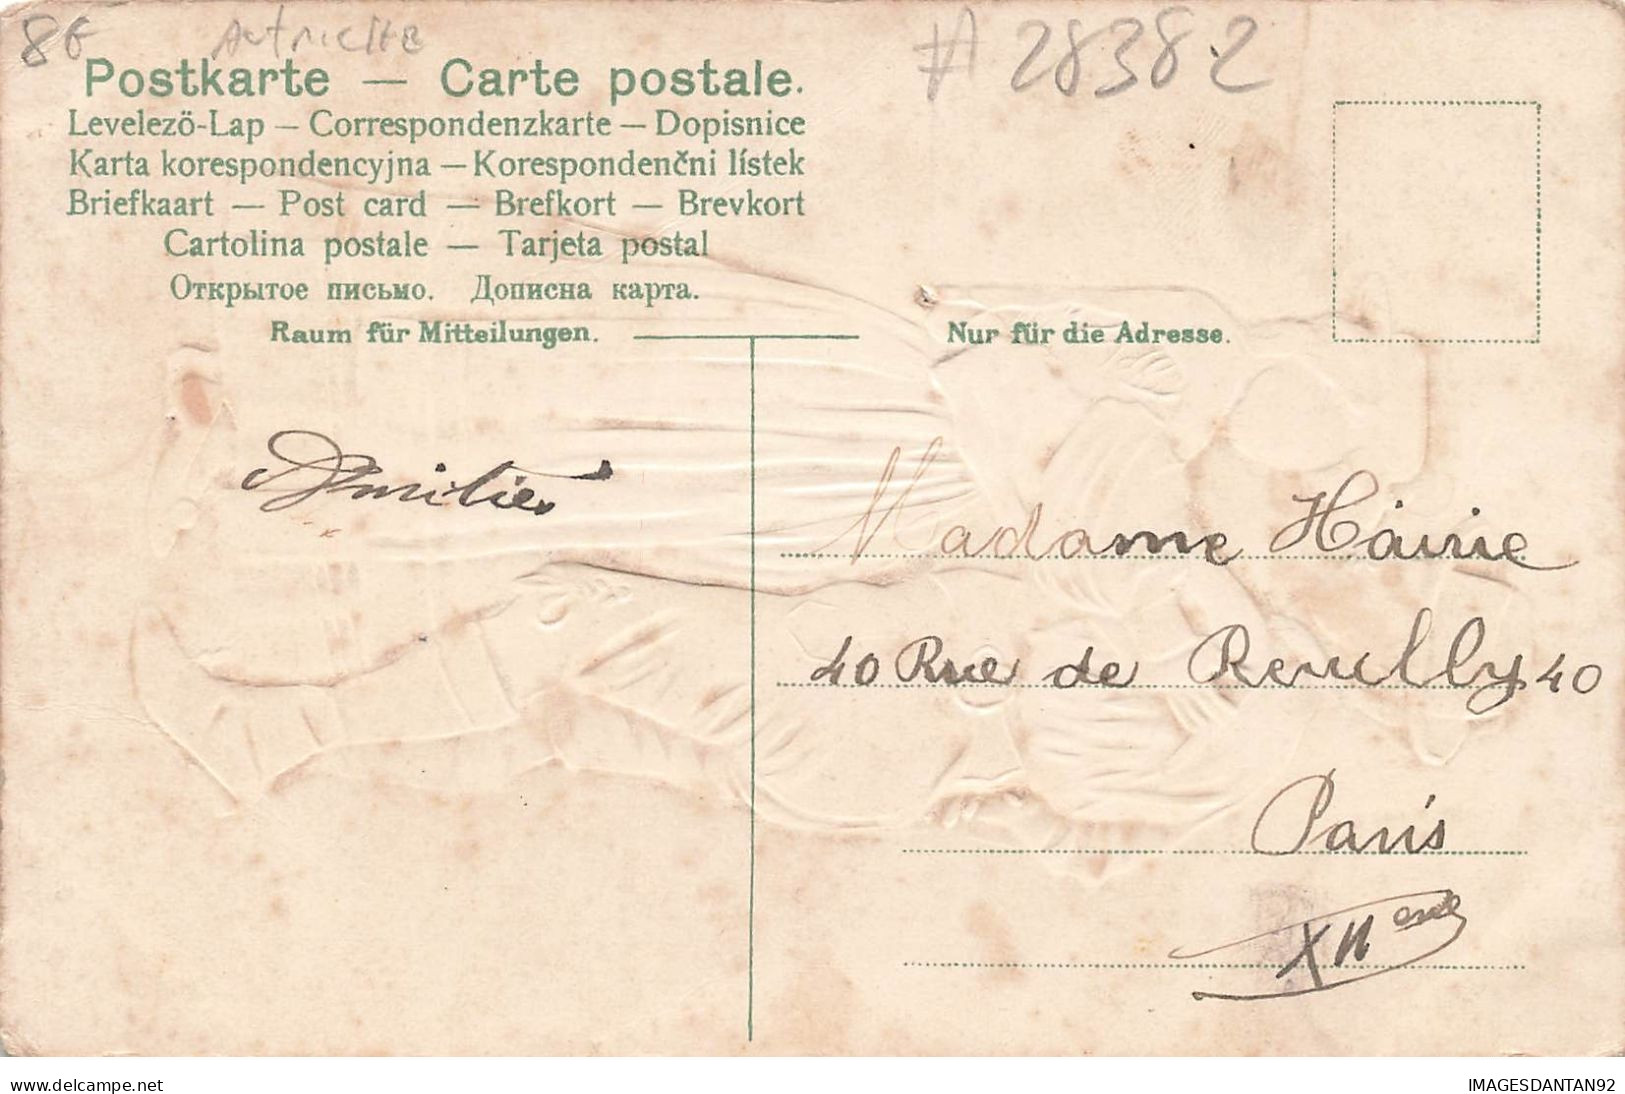 8€ Autriche # 28382
Postkarte — Carte postale.
Levelező-Lap — Correspondenzkarte — Dopisnice
Karta korespondencyjna — Korespondenčni lístek
Briefkaart — Post card — Brefkort — Brevkort
Cartolina postale — Tarjeta postal
Открытое письмо. Дописна карта.
Raum für Mitteilungen.
Nur für die Adresse.
Amitiés
Madame Hainie
40 Rue de Reuilly 40
Paris
XII eme
www.delcampe.net
IMAGESDANTAN92